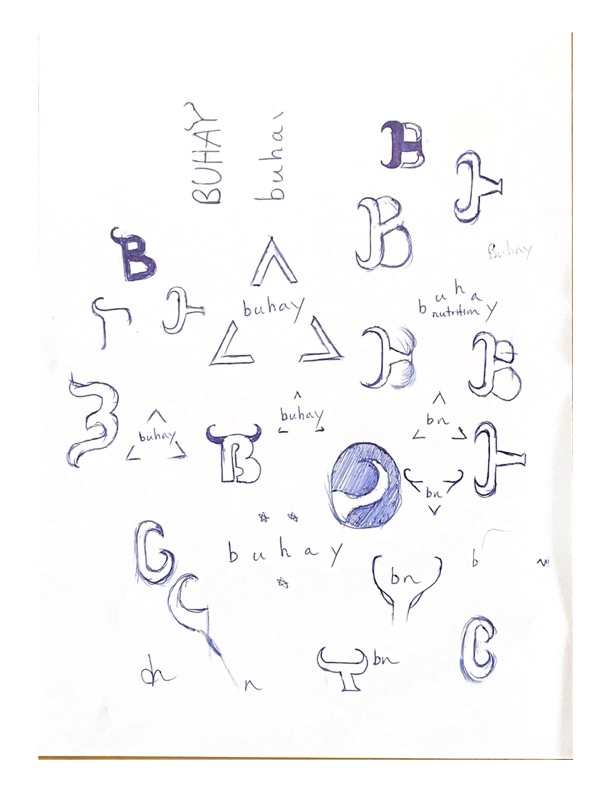 BUHAY
buha
B
B
Buhay
B
buhay
buha
nutrition y
B
buhay
buhay
bn
B
bn
buhay
bn
b
bn
n